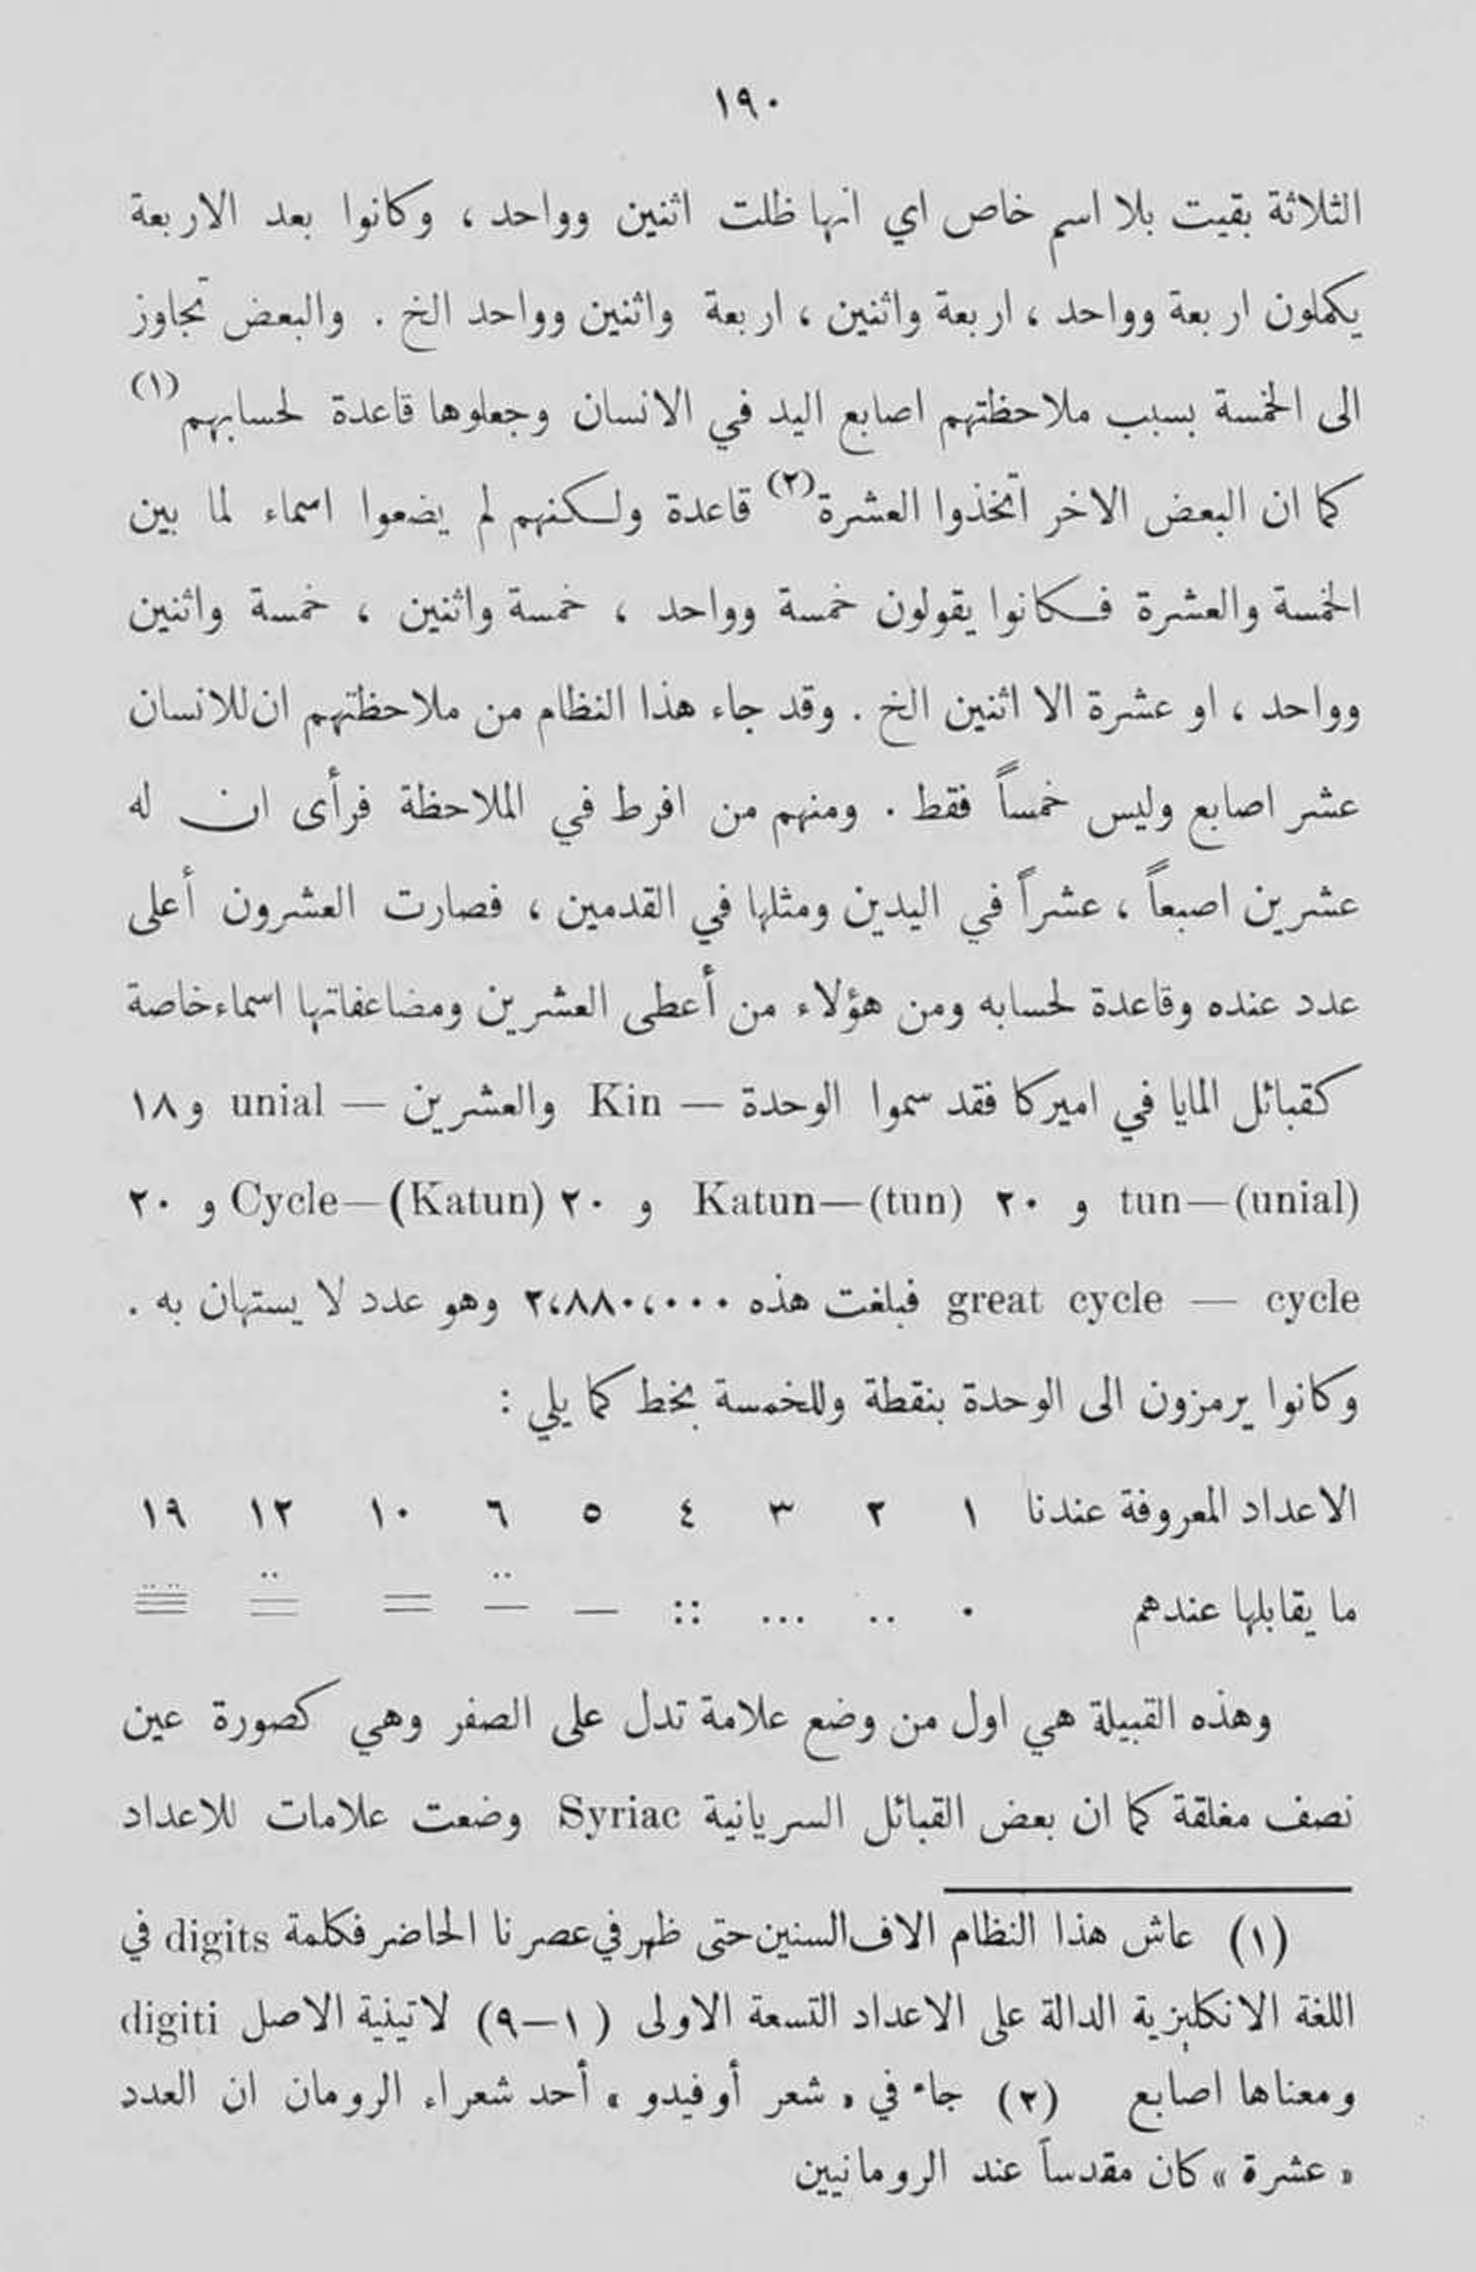 ١٩٠
الثلاثة بقيت بلا اسم خاص اي انها ظلت اثنين وواحد ، وكانوا بعد الاربعة
يكملون اربعة وواحد ، اربعة واثنين ، اربعة واثنين وواحد الخ . والبعض تجاوز
الى الخمسة بسبب ملاحظتهم اصابع اليد في الانسان وجعلوها قاعدة لحسابهم (١)
كما ان البعض الاخر اتخذوا العشرة (٢) قاعدة ولكنهم لم يضعوا اسماء لما بين
الخمسة والعشرة فكانوا يقولون خمسة وواحد ، خمسة واثنين ، خمسة واثنين
وواحد ، او عشرة الا اثنين الخ . وقد جاء هذا النظام من ملاحظتهم ان للانسان
عشر اصابع وليس خمساً فقط . ومنهم من افرط في الملاحظة فرأى ان له
عشرين اصبعاً ، عشراً في اليدين ومثلها في القدمين ، فصارت العشرون أعلى
عدد عنده وقاعدة لحسابه ومن هؤلاء من أعطى العشرين ومضاعفاتها اسماء خاصة
كقبائل المايا في اميركا فقد سموا الوحدة — Kin والعشرين — unial و ١٨
tun—(unial) و ٢٠ Katun—(tun) و ٢٠ Cycle—(Katun) و ٢٠
great cycle — cycle فبلغت هذه ٢،٨٨٠،٠٠٠ وهو عدد لا يستهان به .
وكانوا يرمزون الى الوحدة بنقطة وللخمسة بخط كما يلي :
الاعداد المعروفة عندنا ١ ٢ ٣ ٤ ٥ ٦ ١٠ ١٢ ١٩
ما يقابلها عندهم . .. ... :: —
وهذه القبيلة هي اول من وضع علامة تدل على الصفر وهي كصورة عين
نصف مغلقة كما ان بعض القبائل السريانية Syriac وضعت علامات للاعداد
(١) عاش هذا النظام الاف السنين حتى ظهر في عصرنا الحاضر فكلمة digits في
اللغة الانكليزية الدالة على الاعداد التسعة الاولى (١—٩) لاتينية الاصل digiti
ومعناها اصابع (٢) جاء في « شعر أوفيدو » أحد شعراء الرومان ان العدد
« عشرة » كان مقدساً عند الرومانيين